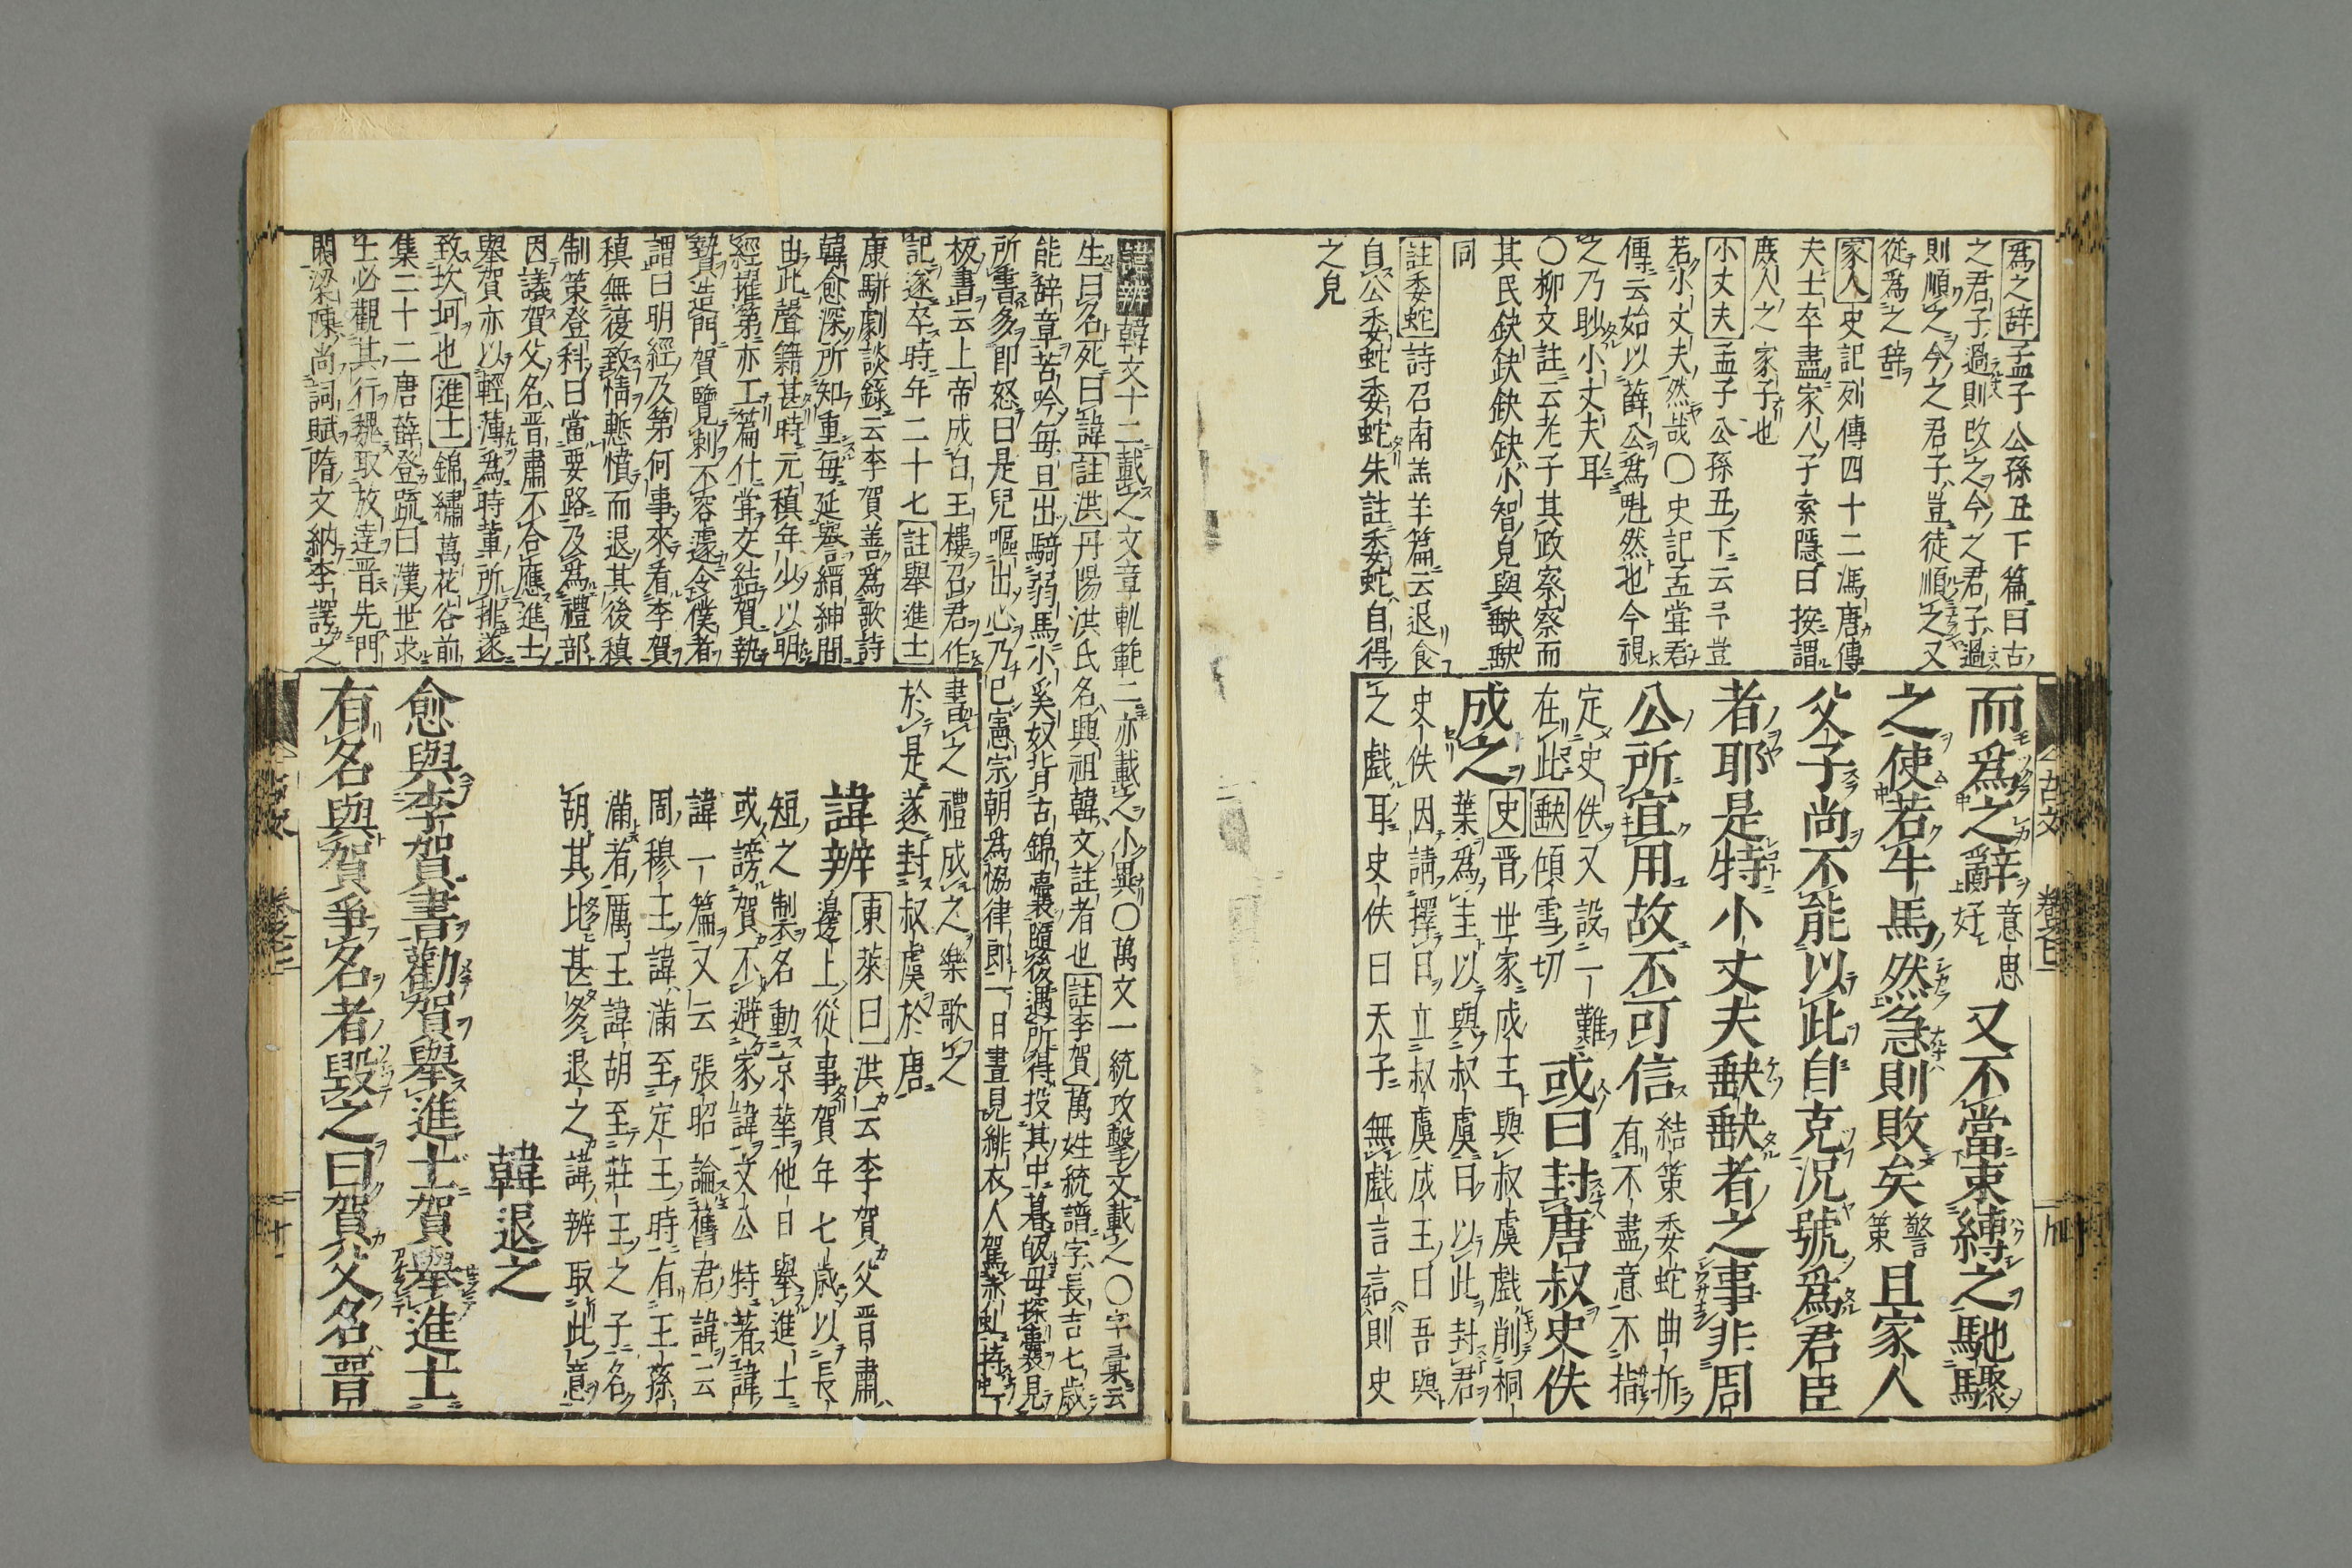 爲之辭孟子公孫丑下篇曰古
之君子過則改之今之君子過
則順之今之君子豈徒順之又
從爲之辭
家人史記列傳四十二馮唐傳
夫士卒盡家人子索隱曰按謂
庶人之家子也
小丈夫孟子公孫丑下云予豈
若小丈夫然哉〇史記孟嘗君
傳云始以薛公爲魁然也今視
之乃眇小丈夫耳
〇柳文註云老子其政察察而
其民缺缺缺缺小智皃與𡙇𡙇
同
註委蛇詩召南羔羊篇云退食
自公委蛇委蛇朱註委蛇自得
之皃
而爲之辭意思好又不當束縛之馳驟
之使若牛馬然急則敗矣警策且家人
父子尚不能以此自克況號爲君臣
者耶是特小丈夫𡙇𡙇者之事非周
公所宜用故不可信結策委蛇曲折有不盡意不指
定史佚又設一難在此𡙇傾雪切或曰封唐叔史佚
成之史晋世家成王與叔虞戲削桐
葉爲圭以與叔虞曰以此封君
史佚因請擇日立叔虞成王曰吾與
之戲耳史佚曰天子無戲言言則史
古文
諱辨韓文十二載之文章軌範二亦載之小異〇萬文一統攻擊文載之〇字彙云
生曰名死曰諱註洪丹陽洪氏名興祖韓文註者也註李賀萬姓統譜字長吉七歲
能辭章苦吟每旦出騎弱馬小奚奴背古錦囊隨後遇所得投其中暮皈母探囊見
所書多即怒曰是兒嘔出心乃已憲宗朝爲協律郎一日晝見緋衣人駕赤虬持一
板書云上帝成白玉樓召君作
記遂卒時年二十七註舉進士
康駢劇談錄云李賀善爲歌詩
韓愈深所知重每延譽縉紳間
由此聲籍甚時元稹年少以明
經擢第亦工篇什嘗交結賀執
贄造門賀覽刺不容遽令僕者
謂曰明經及第何事來看李賀
稹無復致情慙憤而退其後稹
制策登科曰當要路及爲禮部
因議賀父名晋肅不合應進士
舉賀亦以輕薄爲時輩所排遂
致坎坷也進士錦繡萬花谷前
集二十二唐薛登疏曰漢世求
士必觀其行魏取放達晋先門
閥梁陳尚詞賦隋文納李諤之
書之禮成之樂歌之
於是遂封叔虞於唐
諱辨東萊曰洪云李賀父晋肅
邊上從事賀年七歲以長
短之製名動京華他日舉進士
或謗賀不避家諱文公特著諱
諱一篇又云張昭論舊君諱云
周穆王諱滿至定王時有王孫
滿者厲王諱胡至莊王之子名
胡其比甚多退之諱辨取此意
韓退之
愈與李賀書勸賀舉進士賀舉進士
有名與賀爭名者毀之曰賀父名晋